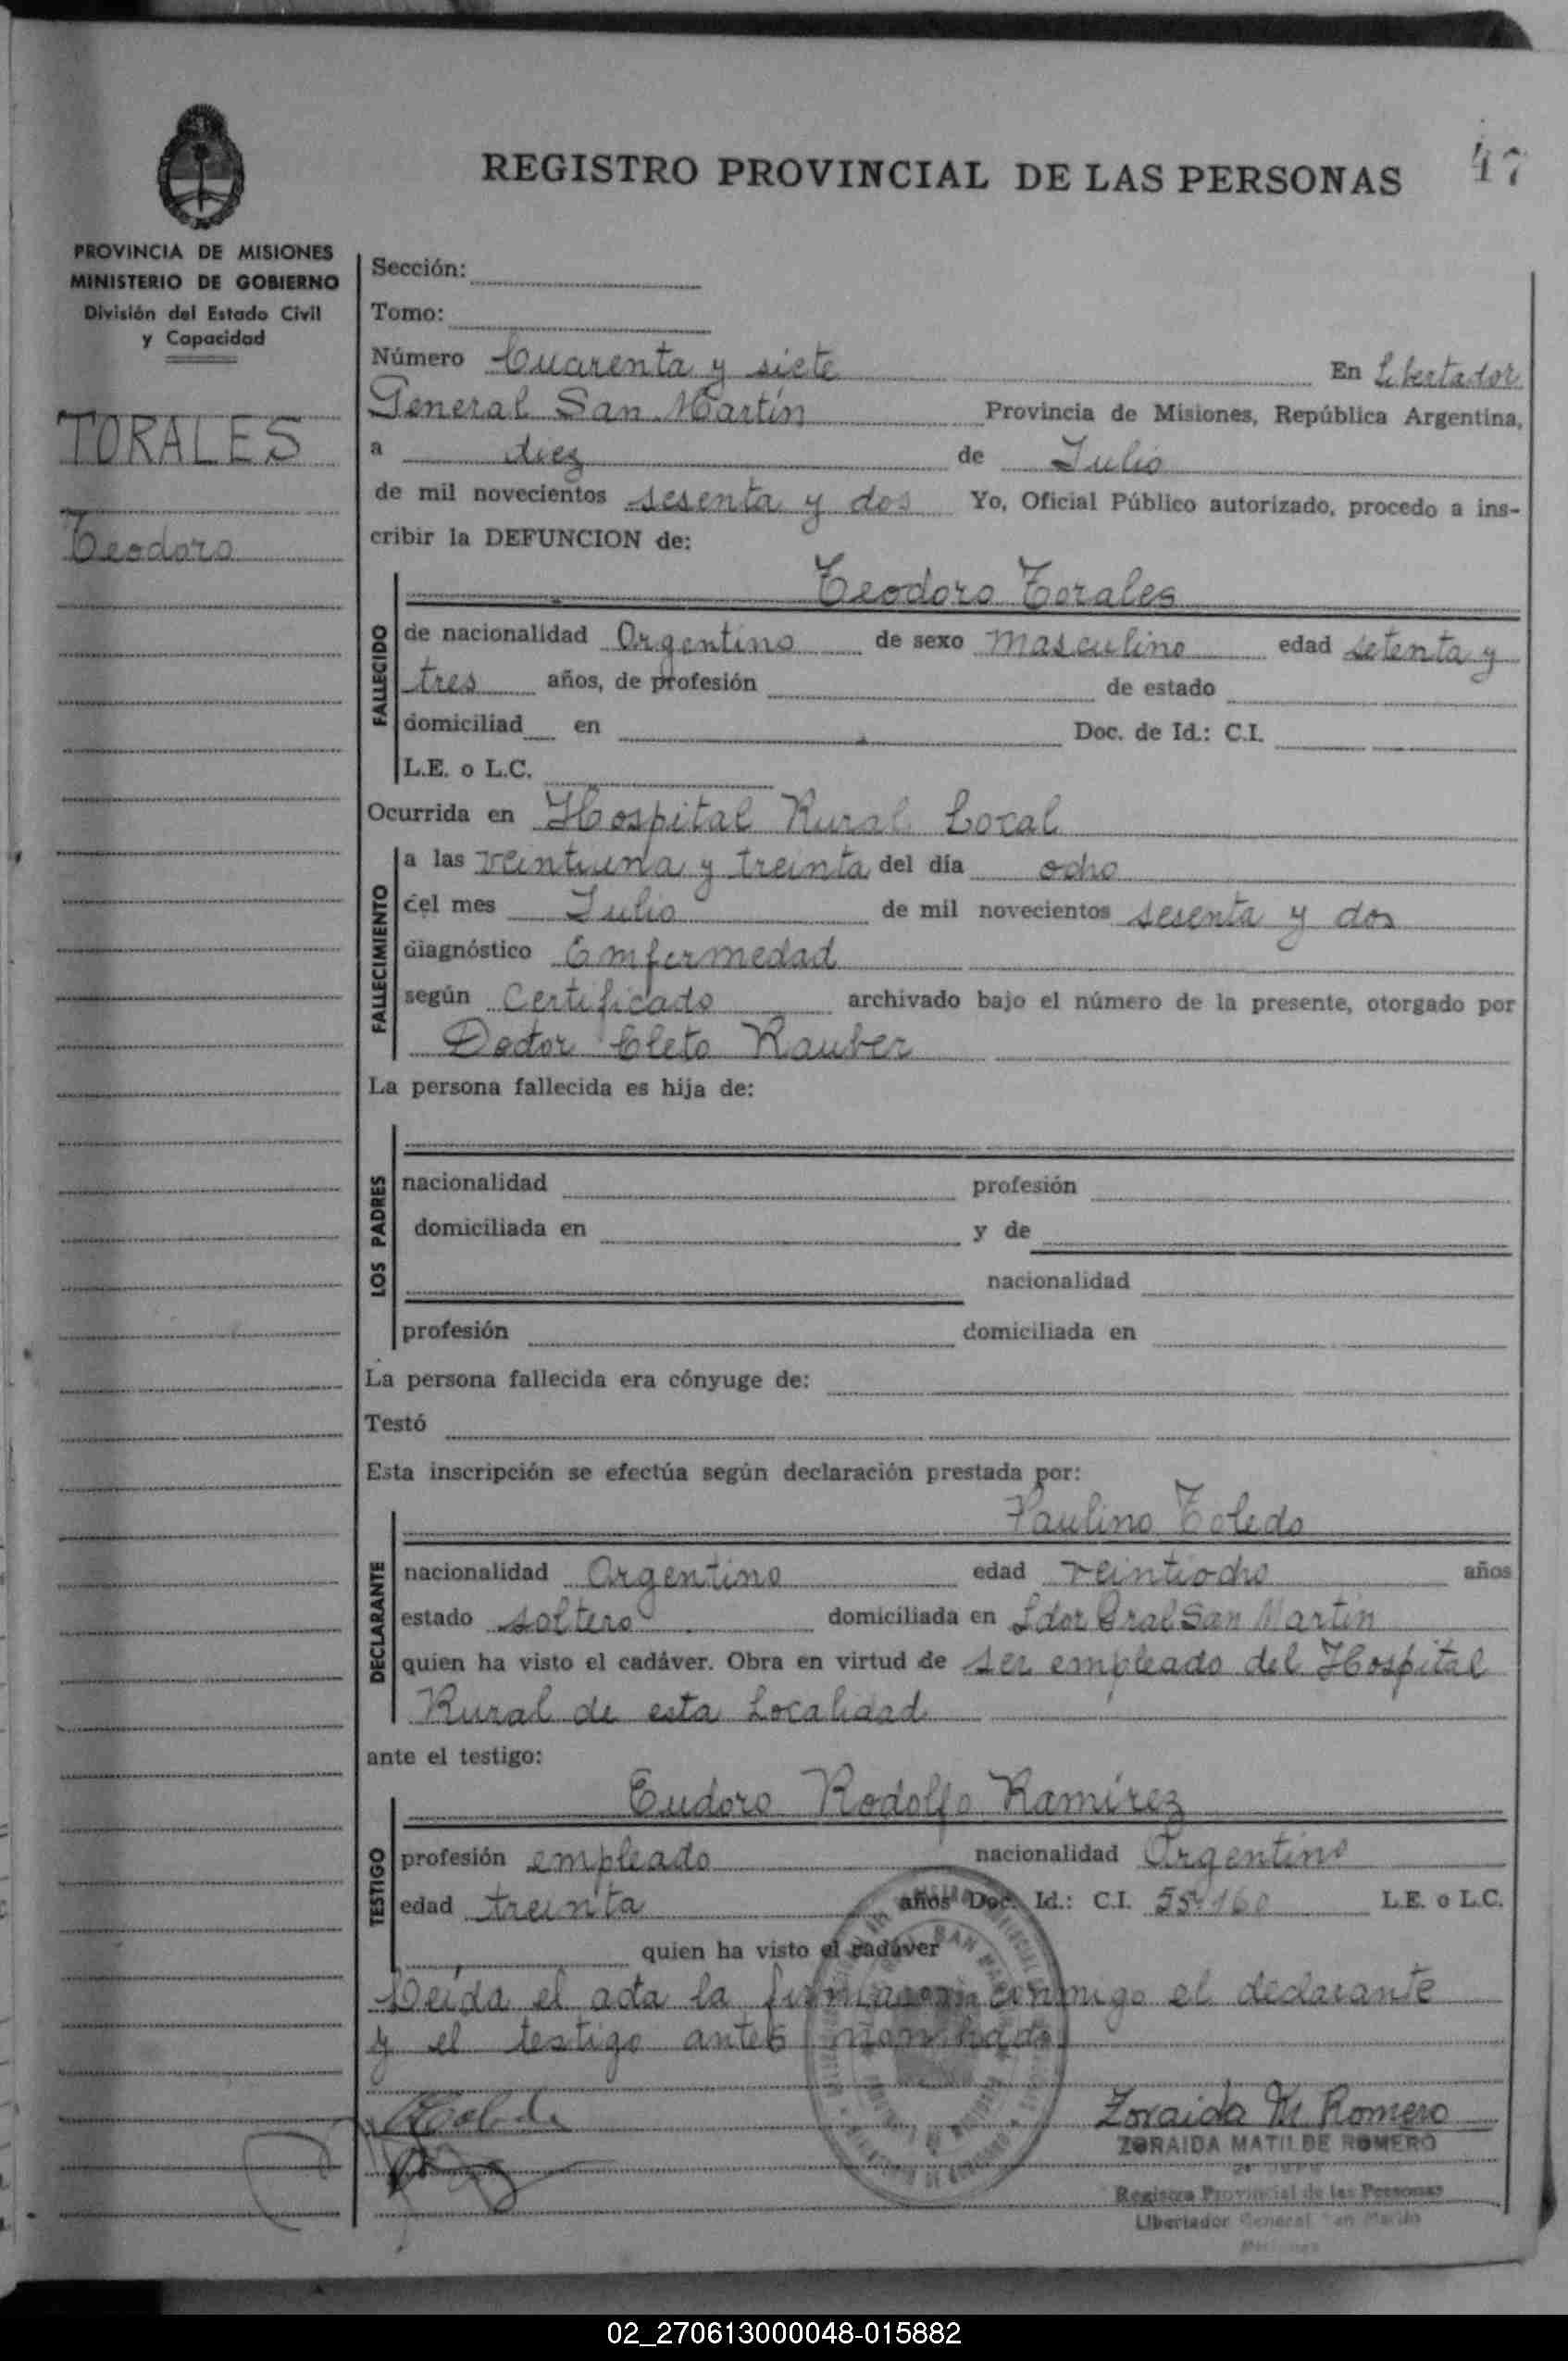 47
REGISTRO PROVINCIAL DE LAS PERSONAS
PROVINCIA DE MISIONES
MINISTERIO DE GOBIERNO
División del Estado Civil
y Capacidad
TORALES
Teodoro
Sección:
Tomo:
Número Cuarenta y siete En Libertador
General San Martín Provincia de Misiones, República Argentina,
a diez de Julio
de mil novecientos sesenta y dos Yo, Oficial Público autorizado, procedo a ins-
cribir la DEFUNCION de:
Teodoro Torales
FALLECIDO
de nacionalidad Argentino de sexo masculino edad setenta y
tres años, de profesión de estado
domiciliad en Doc. de Id.: C.I.
L.E. o L.C.
Ocurrida en Hospital Rural Local
FALLECIMIENTO
a las veintiuna y treinta del día ocho
del mes Julio de mil novecientos sesenta y dos
diagnóstico Emfermedad
según Certificado archivado bajo el número de la presente, otorgado por
Doctor Cleto Rauber
La persona fallecida es hija de:
LOS PADRES
nacionalidad profesión
domiciliada en y de
nacionalidad
profesión domiciliada en
La persona fallecida era cónyuge de:
Testó
Esta inscripción se efectúa según declaración prestada por:
Paulino Toledo
DECLARANTE
nacionalidad Argentino edad veintiocho años
estado soltero domiciliada en Ldor Gral San Martín
quien ha visto el cadáver. Obra en virtud de ser empleado del Hospital
Rural de esta Localidad
ante el testigo:
Eudoro Rodolfo Ramírez
TESTIGO
profesión empleado nacionalidad Argentino
edad treinta años Doc. Id.: C.I. L.E. o L.C.
quien ha visto el cadáver
Leída el acta la firman conmigo el declarante
y el testigo antes nombrado
Zoraida M Romero
ZORAIDA MATILDE ROMERO
Registro Provincial de las Personas
Libertador General San Martín
Misiones
02_270613000048-015882